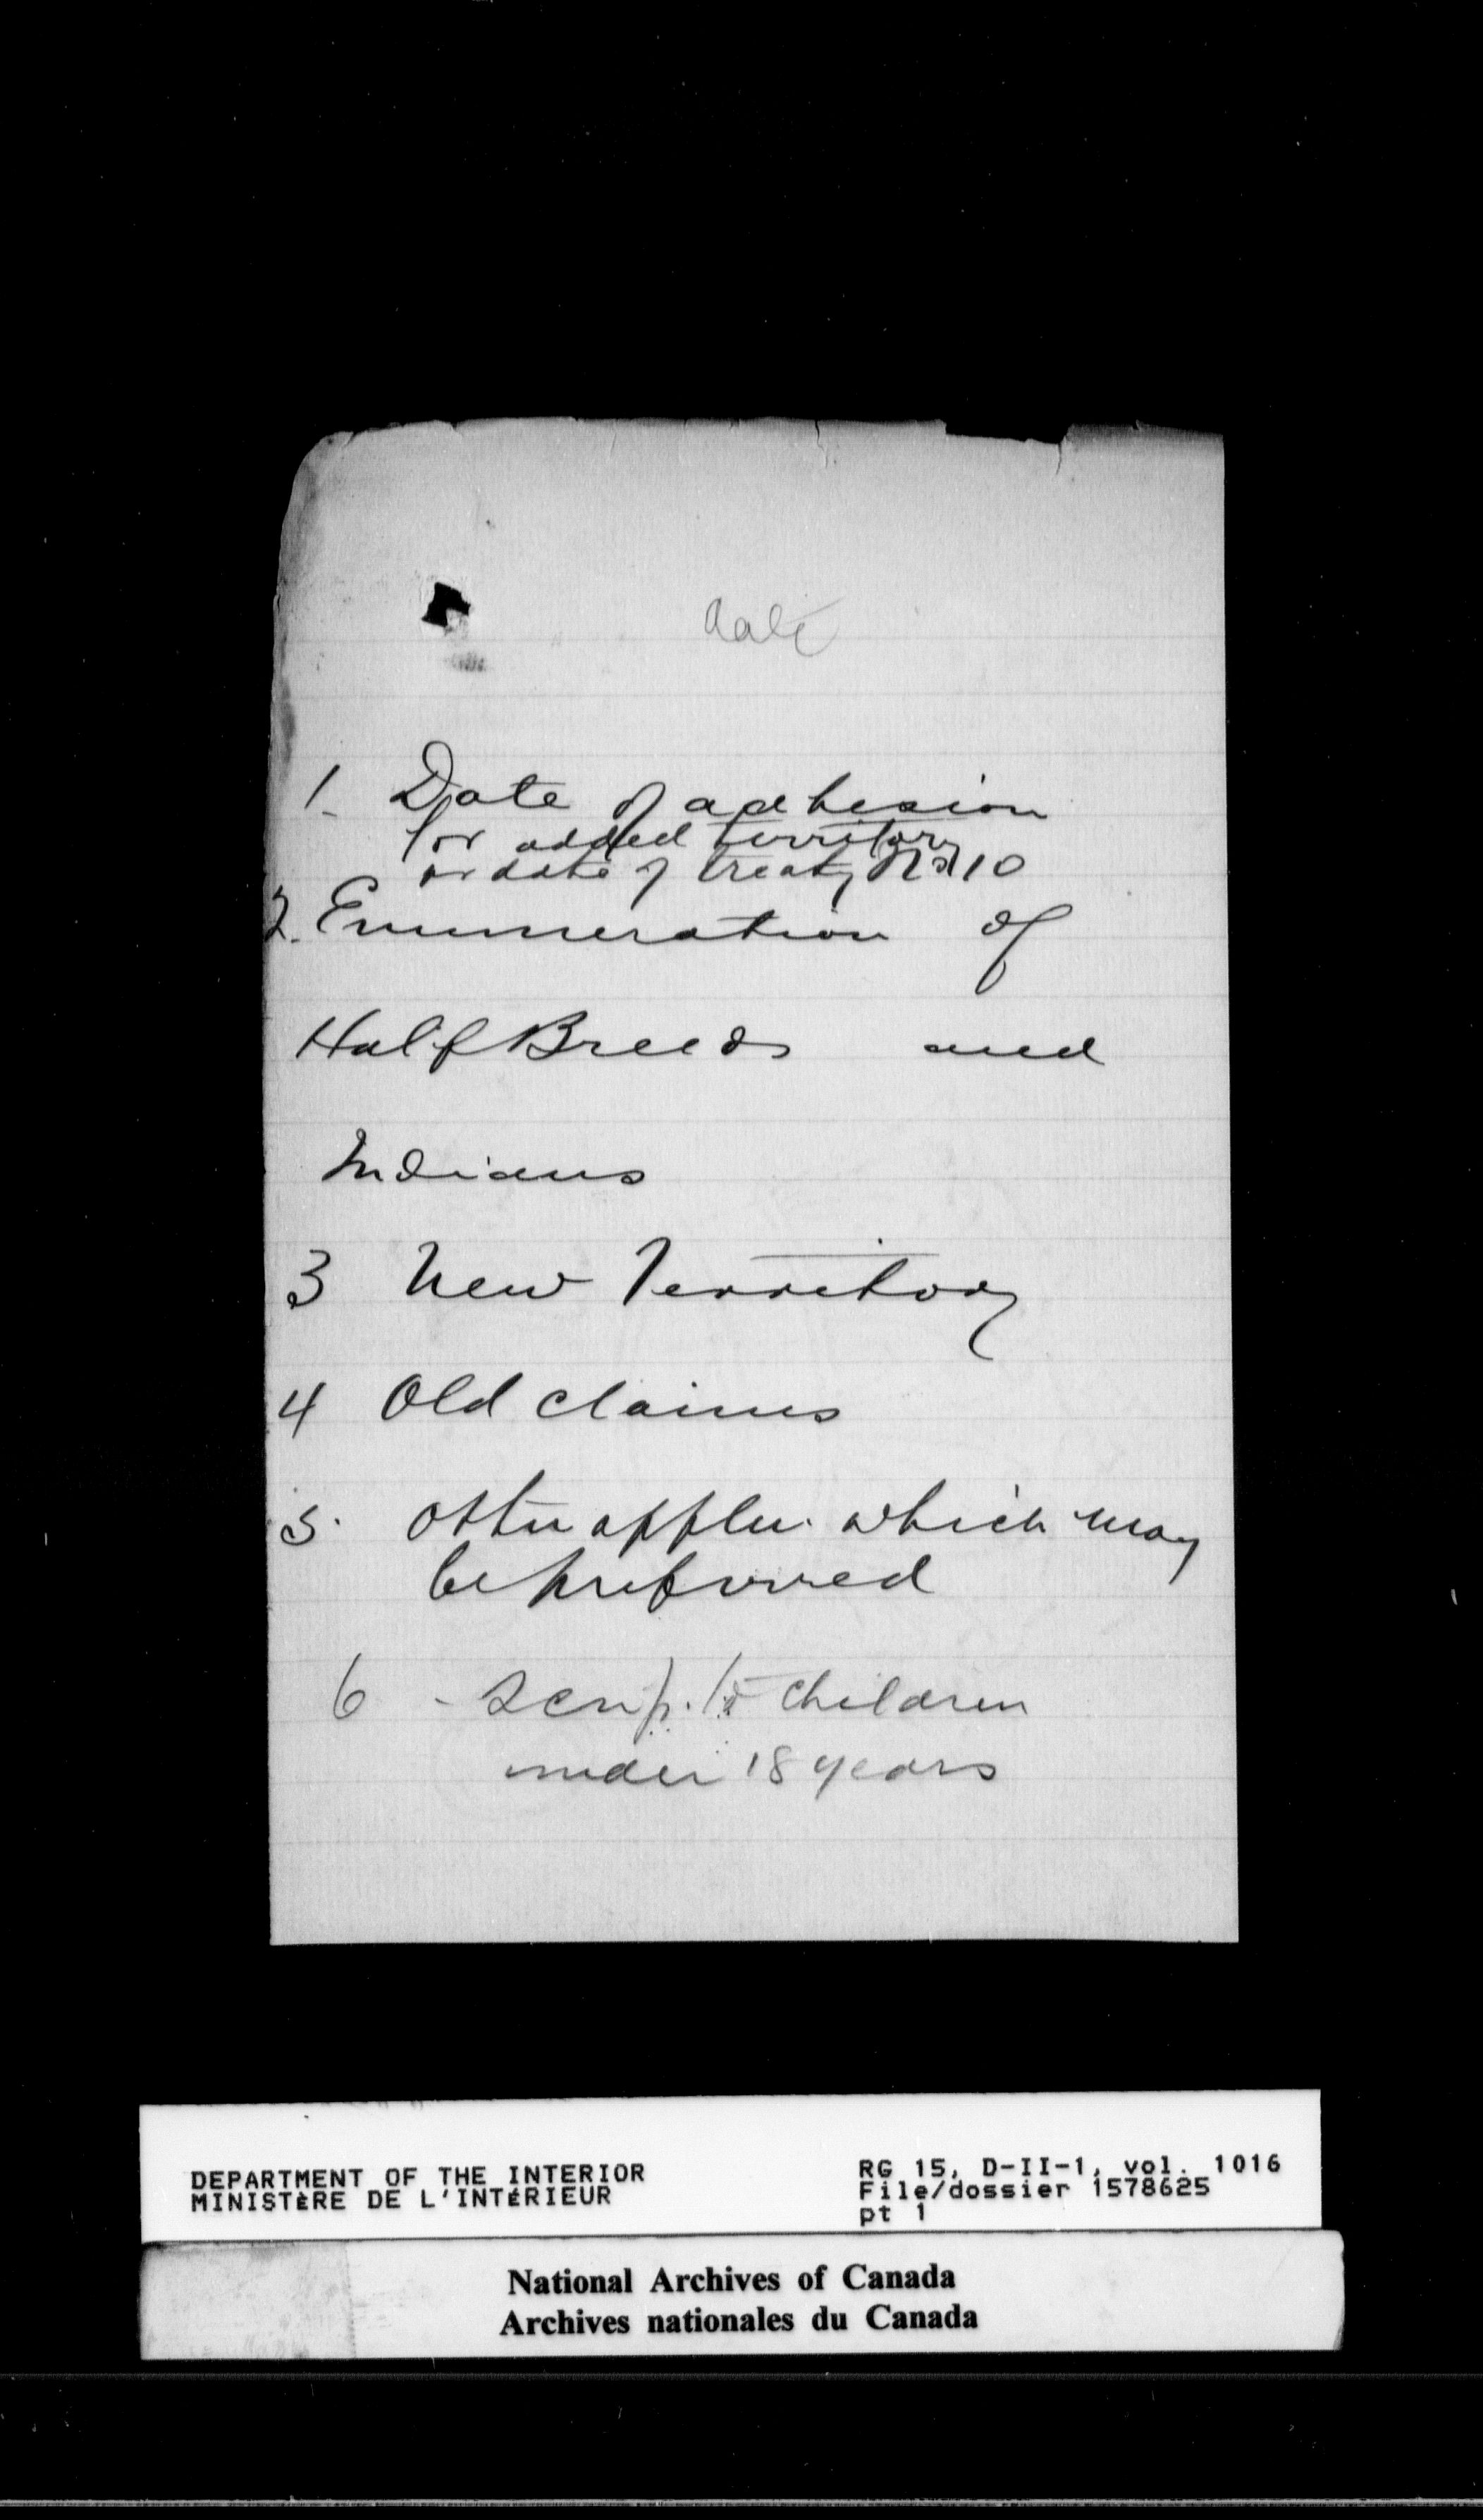 date
1. Date of adhesion
for added territory
or date of treaty No 10
2. Enumeration of
Half Breeds and
Indians
3 New Territory
4 Old claims
5. Other applns. which may
be preferred
6 - Scrip. to children
under 18 years
DEPARTMENT OF THE INTERIOR
MINISTÈRE DE L'INTÉRIEUR
RG 15, D-II-1, vol. 1016
File/dossier 1578625
pt 1
National Archives of Canada
Archives nationales du Canada